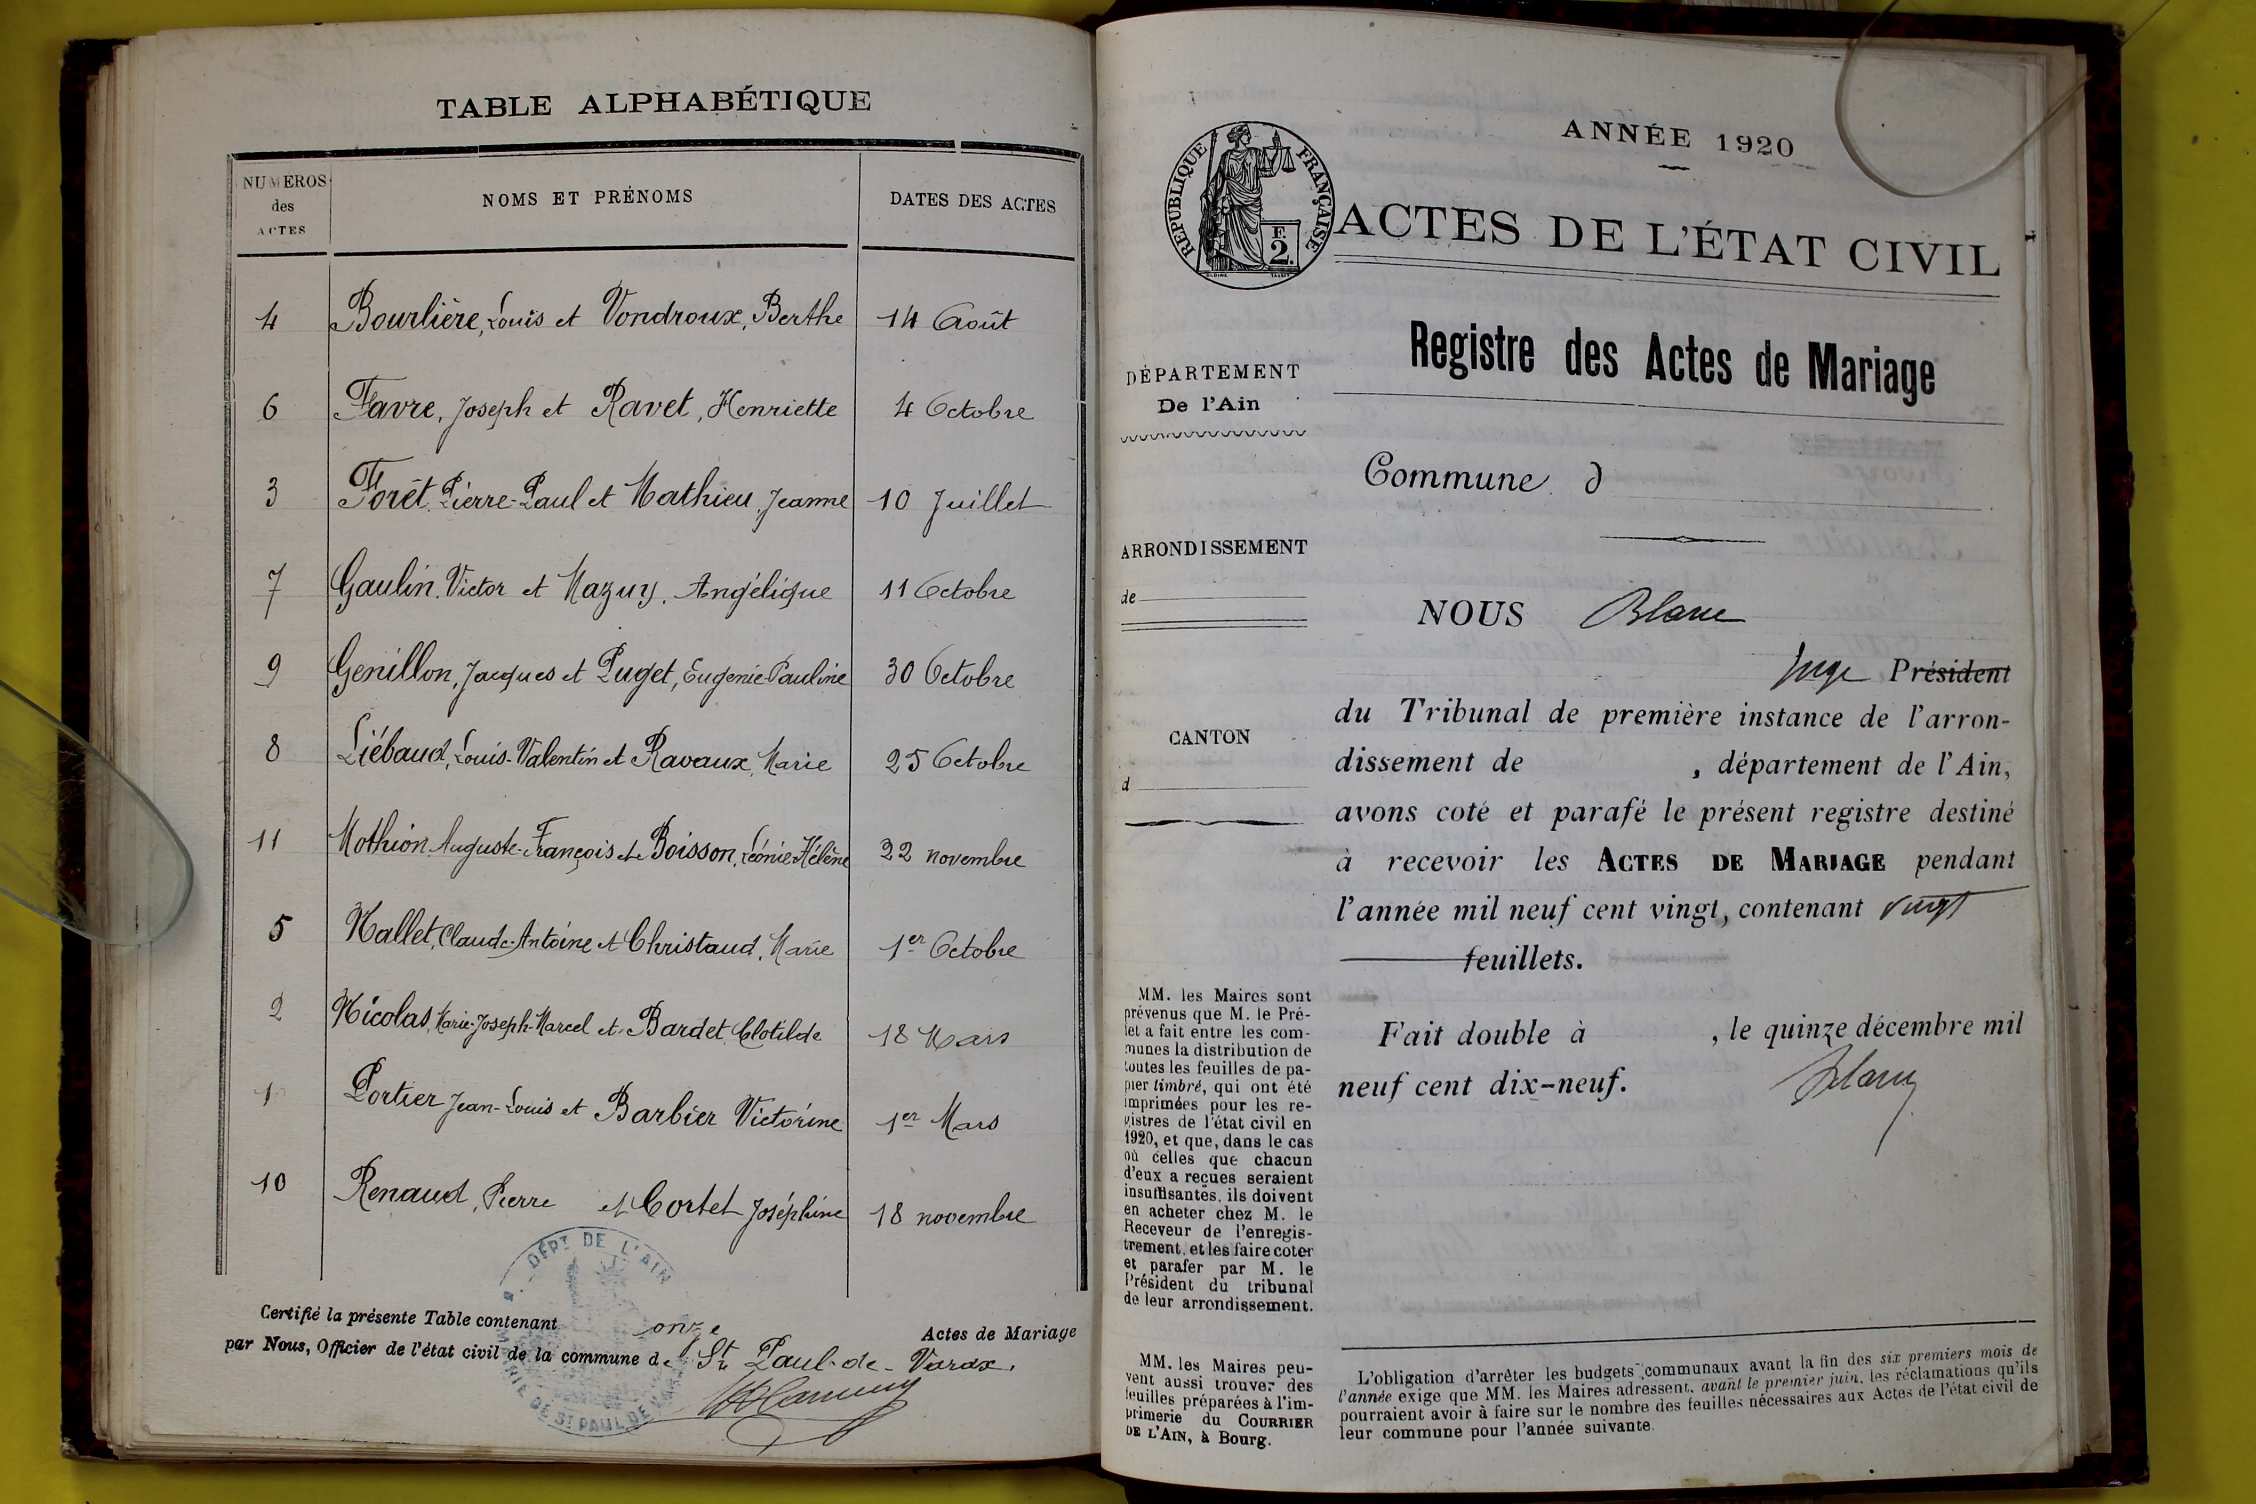 TABLE ALPHABÉTIQUE
NUMEROS
des
ACTES
NOMS ET PRÉNOMS
DATES DES ACTES
4 Bourlière, Louis et Vondroux, Berthe 14 Août
6 Favre, Joseph et Ravet, Henriette 4 Octobre
3 Forêt, Pierre-Paul et Mathieu, Jeanne 10 Juillet
7 Gaulin, Victor et Mazuy, Angélique 11 Octobre
9 Genillon, Jacques et Puget, Eugenie-Pauline 30 Octobre
8 Liébaud, Louis-Valentin et Ravaux, Marie 25 Octobre
11 Mothion, Auguste-François et Boisson, Léonie-Hélène 22 novembre
5 Nallet, Claude-Antoine et Christaud, Marie 1er Octobre
2 Nicolas, Marie-Joseph-Marcel et Bardet, Clotilde 18 Mars
1 Portier Jean-Louis et Barbier Victorine 1er Mars
10 Renaud, Pierre et Cortet Joséphine 18 novembre
Certifié la présente Table contenant onze Actes de Mariage
par Nous, Officier de l'état civil de la commune de St Paul-de-Varax.
DÉPT DE L'AIN
MAIRIE DE ST PAUL DE
ANNÉE 1920
RÉPUBLIQUE FRANÇAISE
F.
2.
ACTES DE L'ÉTAT CIVIL
Registre des Actes de Mariage
DÉPARTEMENT
De l'Ain
Commune d
ARRONDISSEMENT
de
CANTON
d
NOUS Blanc
Juge Président
du Tribunal de première instance de l'arron-
dissement de , département de l'Ain,
avons coté et parafé le présent registre destiné
à recevoir les ACTES DE MARIAGE pendant
l'année mil neuf cent vingt, contenant vingt
feuillets.
Fait double à , le quinze décembre mil
neuf cent dix-neuf.
Blanc
MM. les Maires sont
prévenus que M. le Pré-
fet a fait entre les com-
munes la distribution de
toutes les feuilles de pa-
pier timbré, qui ont été
imprimées pour les re-
gistres de l'état civil en
1920, et que, dans le cas
où celles que chacun
d'eux a reçues seraient
insuffisantes, ils doivent
en acheter chez M. le
Receveur de l'enregis-
trement, et les faire coter
et parafer par M. le
Président du tribunal
de leur arrondissement.
MM. les Maires peu-
vent aussi trouver des
feuilles préparées à l'im-
primerie du COURRIER
DE L'AIN, à Bourg.
L'obligation d'arrêter les budgets communaux avant la fin des six premiers mois de
l'année exige que MM. les Maires adressent, avant le premier juin, les réclamations qu'ils
pourraient avoir à faire sur le nombre des feuilles nécessaires aux Actes de l'état civil de
leur commune pour l'année suivante.